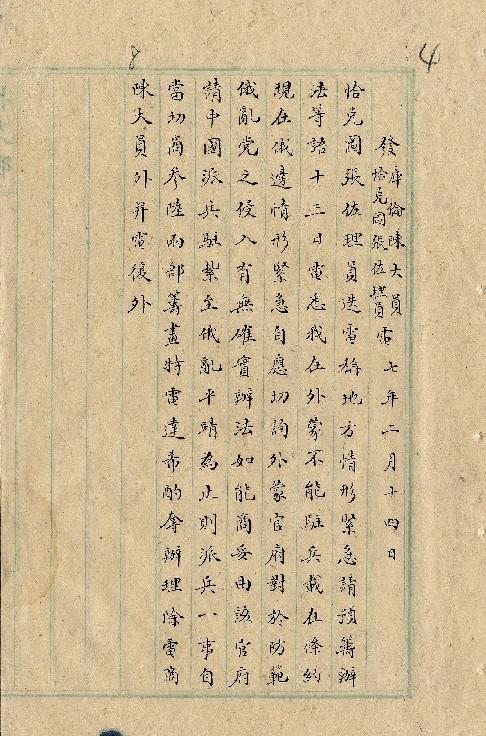 4
8
發庫倫陳大員恰克圖張佐理員電七年二月十四日
恰克圖張佐理員迭電稱地方情形緊急請預籌辦
法等語十三日電悉我在外蒙不能駐兵載在條約
現在俄邊情形緊急自應切詢外蒙官府對於防範
俄亂党之侵入有無確實辦法如能商妥由該官府
請中國派兵駐紮至俄亂平靖為止則派兵一事自
當切商參陸兩部籌畫特電達希酌奪辦理除電商
陳大員外并電復外